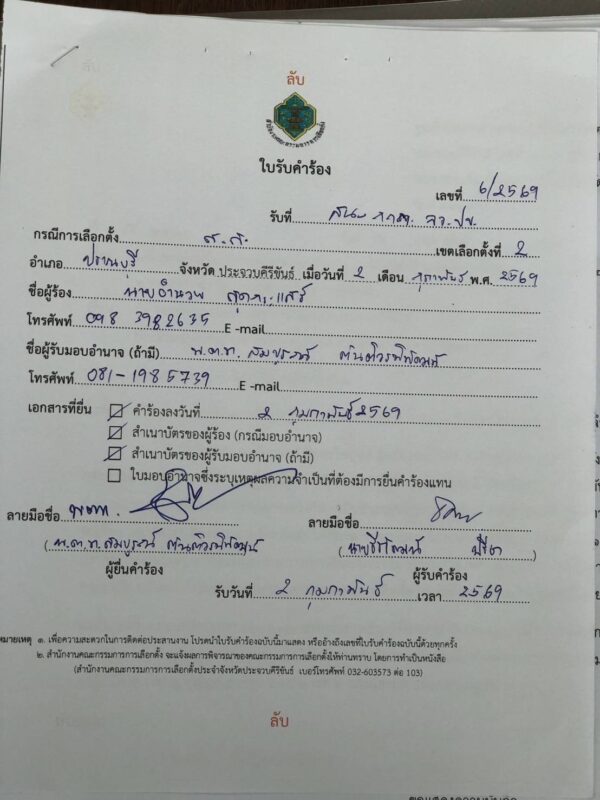 ลับ
สำนักงานคณะกรรมการการเลือกตั้ง
ใบรับคำร้อง
เลขที่ 6/2569
รับที่ สนง. กกต. จว.ปข.
กรณีการเลือกตั้ง ส.ส. เขตเลือกตั้งที่ 2
อำเภอ ปราณบุรี จังหวัด ประจวบคีรีขันธ์ เมื่อวันที่ 2 เดือน กุมภาพันธ์ พ.ศ. 2569
ชื่อผู้ร้อง นายอำนวย
โทรศัพท์ 098 3982635 E -mail
ชื่อผู้รับมอบอำนาจ (ถ้ามี) พ.ต.ท. สมบูรณ์
โทรศัพท์ 081-1985739 E -mail
เอกสารที่ยื่น ☑ คำร้องลงวันที่ 2 กุมภาพันธ์ 2569
☑ สำเนาบัตรของผู้ร้อง (กรณีมอบอำนาจ)
☑ สำเนาบัตรของผู้รับมอบอำนาจ (ถ้ามี)
☐ ใบมอบอำนาจซึ่งระบุเหตุผลความจำเป็นที่ต้องมีการยื่นคำร้องแทน
ลายมือชื่อ พ.ต.ท. ลายมือชื่อ
(พ.ต.ท. สมบูรณ์ ) ( ปรีชา )
ผู้ยื่นคำร้อง ผู้รับคำร้อง
รับวันที่ 2 กุมภาพันธ์ เวลา 2569
หมายเหตุ ๑. เพื่อความสะดวกในการติดต่อประสานงาน โปรดนำใบรับคำร้องฉบับนี้มาแสดง หรืออ้างถึงเลขที่ใบรับคำร้องฉบับนี้ด้วยทุกครั้ง
๒. สำนักงานคณะกรรมการการเลือกตั้ง จะแจ้งผลการพิจารณาของคณะกรรมการการเลือกตั้งให้ท่านทราบ โดยการทำเป็นหนังสือ
(สำนักงานคณะกรรมการการเลือกตั้งประจำจังหวัดประจวบคีรีขันธ์ เบอร์โทรศัพท์ 032-603573 ต่อ 103)
ลับ